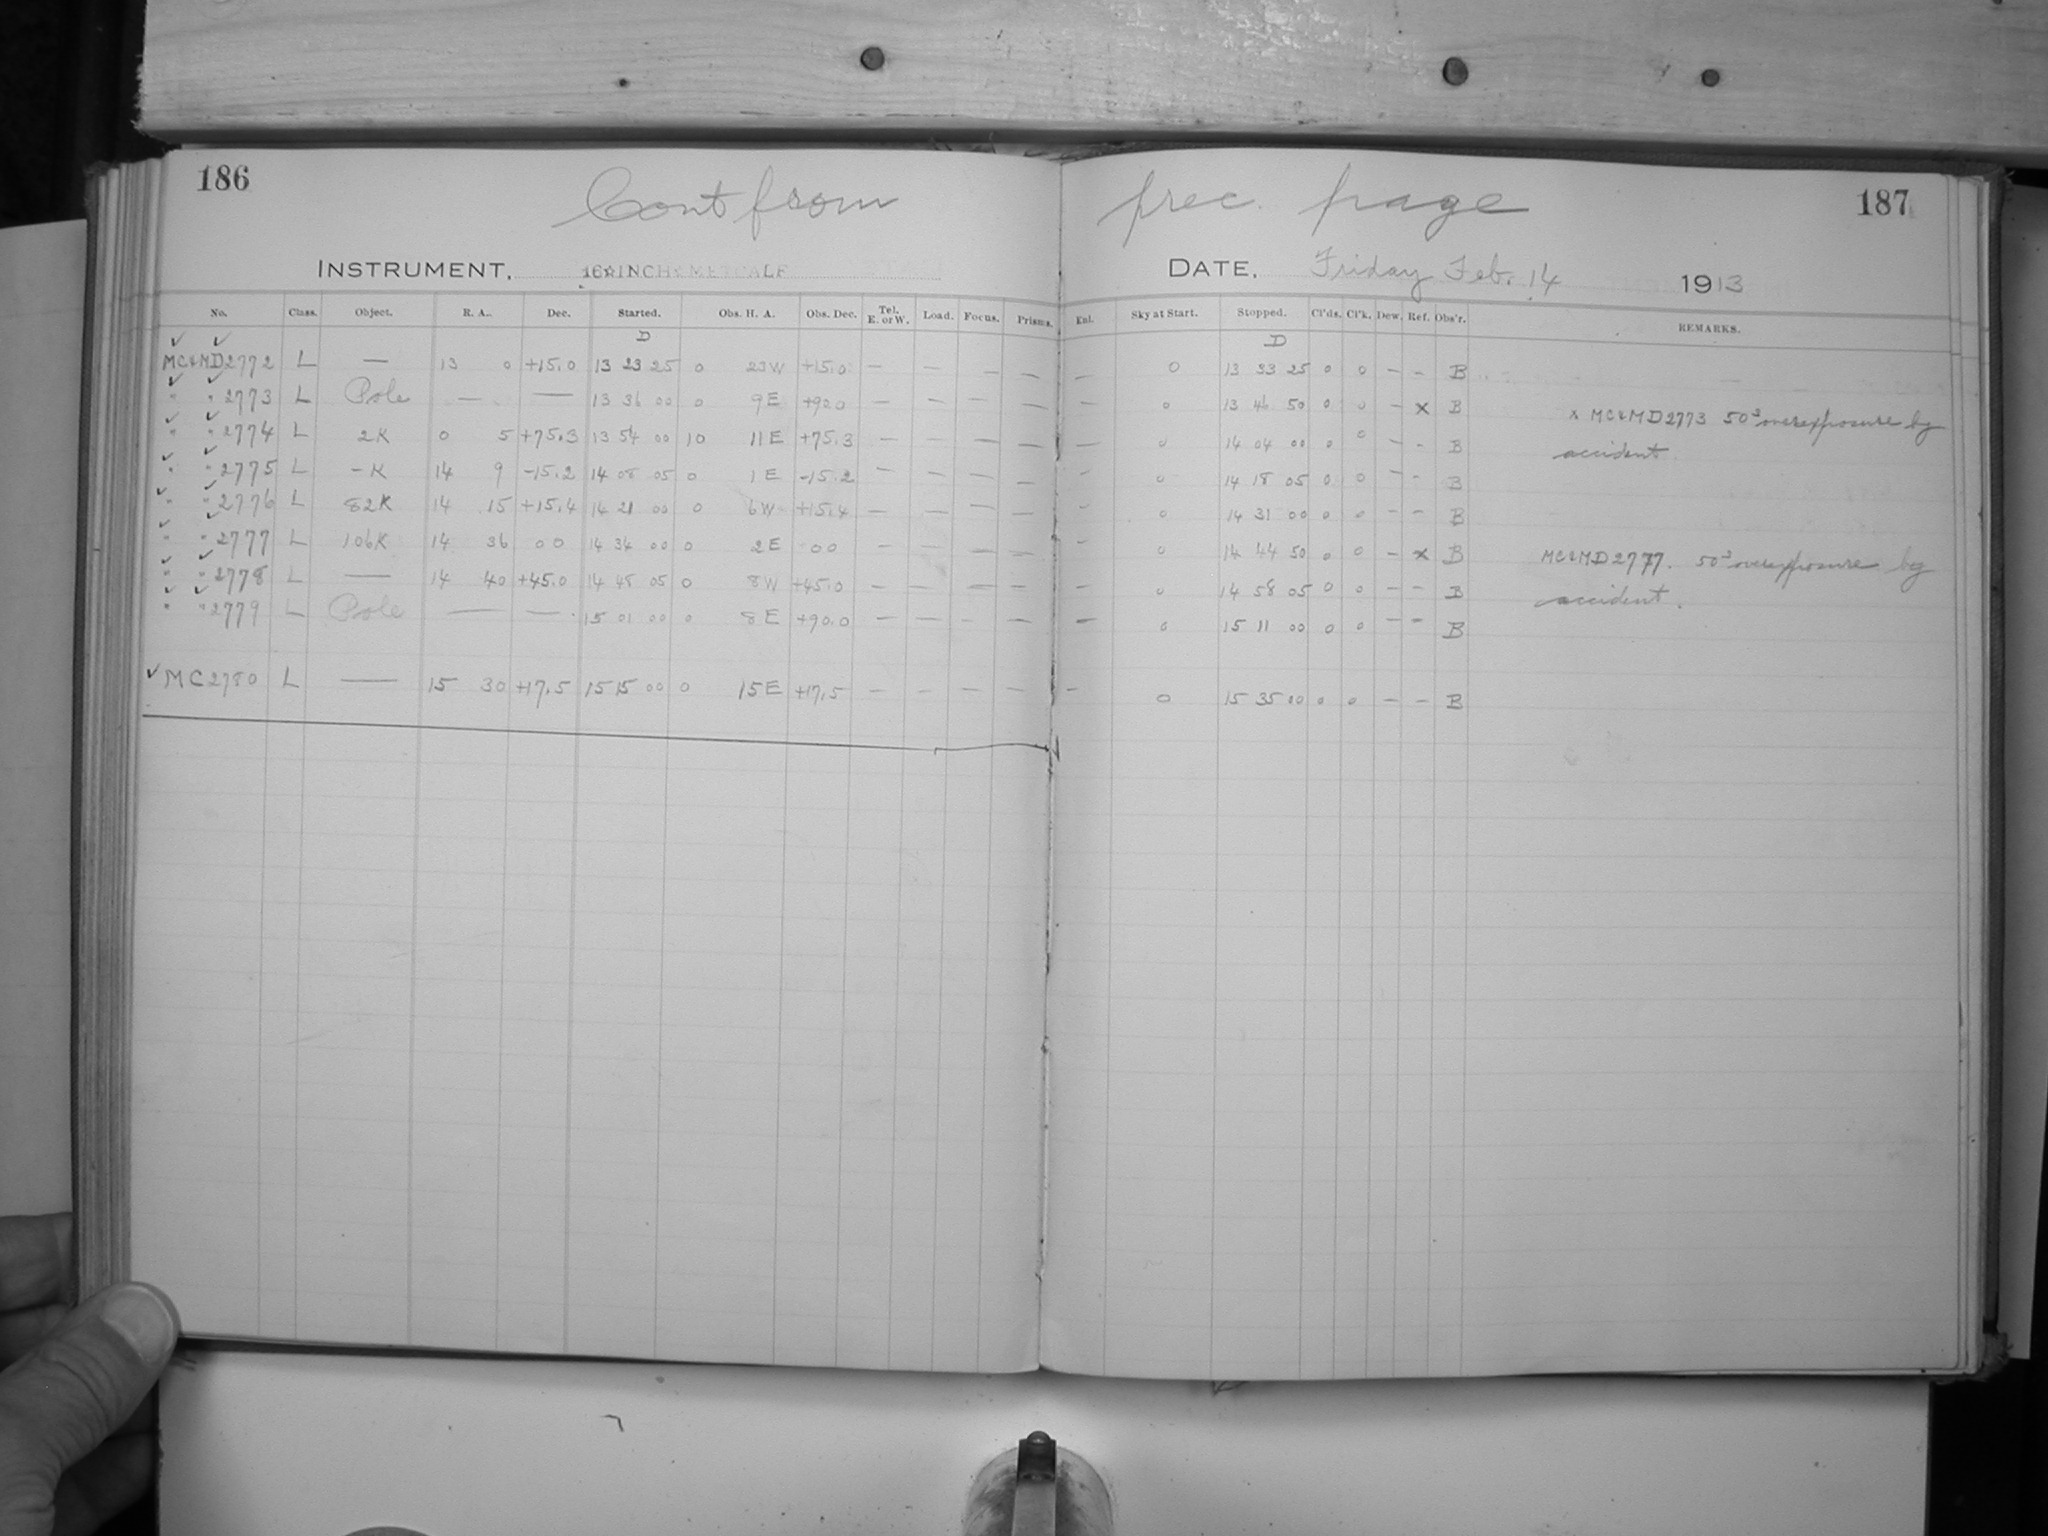 186 Cont from prec. page 187
INSTRUMENT, 16 INCH METCALF DATE, Friday Feb. 14 1913
No. Class. Object. R. A. Dec. Started. Obs. H. A. Obs. Dec. Tel. E. or W. Load. Focus. Prisms. Enl. Sky at Start. Stopped. Cl'ds. Cl'k. Dew. Ref. Obs'r. REMARKS.
D D
✓ ✓
MC&MD2772 L — 13 0 +15.0 13 23 25 0 23W +15.0 — — — — — 0 13 33 25 0 0 — — B
✓ ✓
" " 2773 L Pole — — 13 36 00 0 9E +90.0 — — — — — 0 13 46 50 0 0 — x B x MC&MD2773 50ˢ overexposure by
✓ ✓
" " 2774 L 2K 0 5 +75.3 13 54 00 10 11E +75.3 — — — — — 0 14 04 00 0 0 — — B accident.
✓ ✓
" " 2775 L -K 14 9 -15.2 14 08 05 0 1E -15.2 — — — — — 0 14 18 05 0 0 — — B
✓ ✓
" " 2776 L 82K 14 15 +15.4 14 21 00 0 6W +15.4 — — — — — 0 14 31 00 0 0 — — B
✓ ✓
" " 2777 L 106K 14 36 00 14 34 00 0 2E 00 — — — — — 0 14 44 50 0 0 — x B MC&MD2777. 50ˢ overexposure by
✓ ✓
" " 2778 L — 14 40 +45.0 14 48 05 0 8W +45.0 — — — — — 0 14 58 05 0 0 — — B accident.
✓ ✓
" " 2779 L Pole — — 15 01 00 0 8E +90.0 — — — — — 0 15 11 00 0 0 — — B
✓ MC2780 L — 15 30 +17.5 15 15 00 0 15E +17.5 — — — — — 0 15 35 00 0 0 — — B